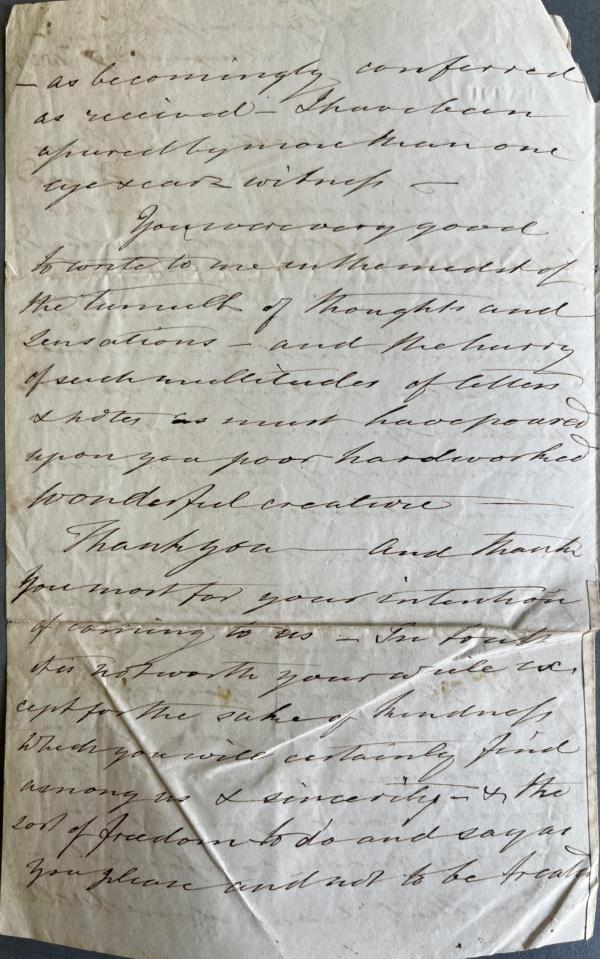 – as becomingly conferred
as received – I have been
assured by more than one
eye & ear witness –
You were very good
to write to me in the midst of
the tumult of thoughts and
sensations – and the hurry
of such multitudes of letters
& notes as must have poured
upon you poor hardworked
wonderful creature –
Thank you — And thank
you most for your intention
of coming to us – In truth
it is not worth your while ex
cept for the sake of kindness
which you will certainly find
among us & sincerity – & the
sort of freedom to do and say as
you please and not to be